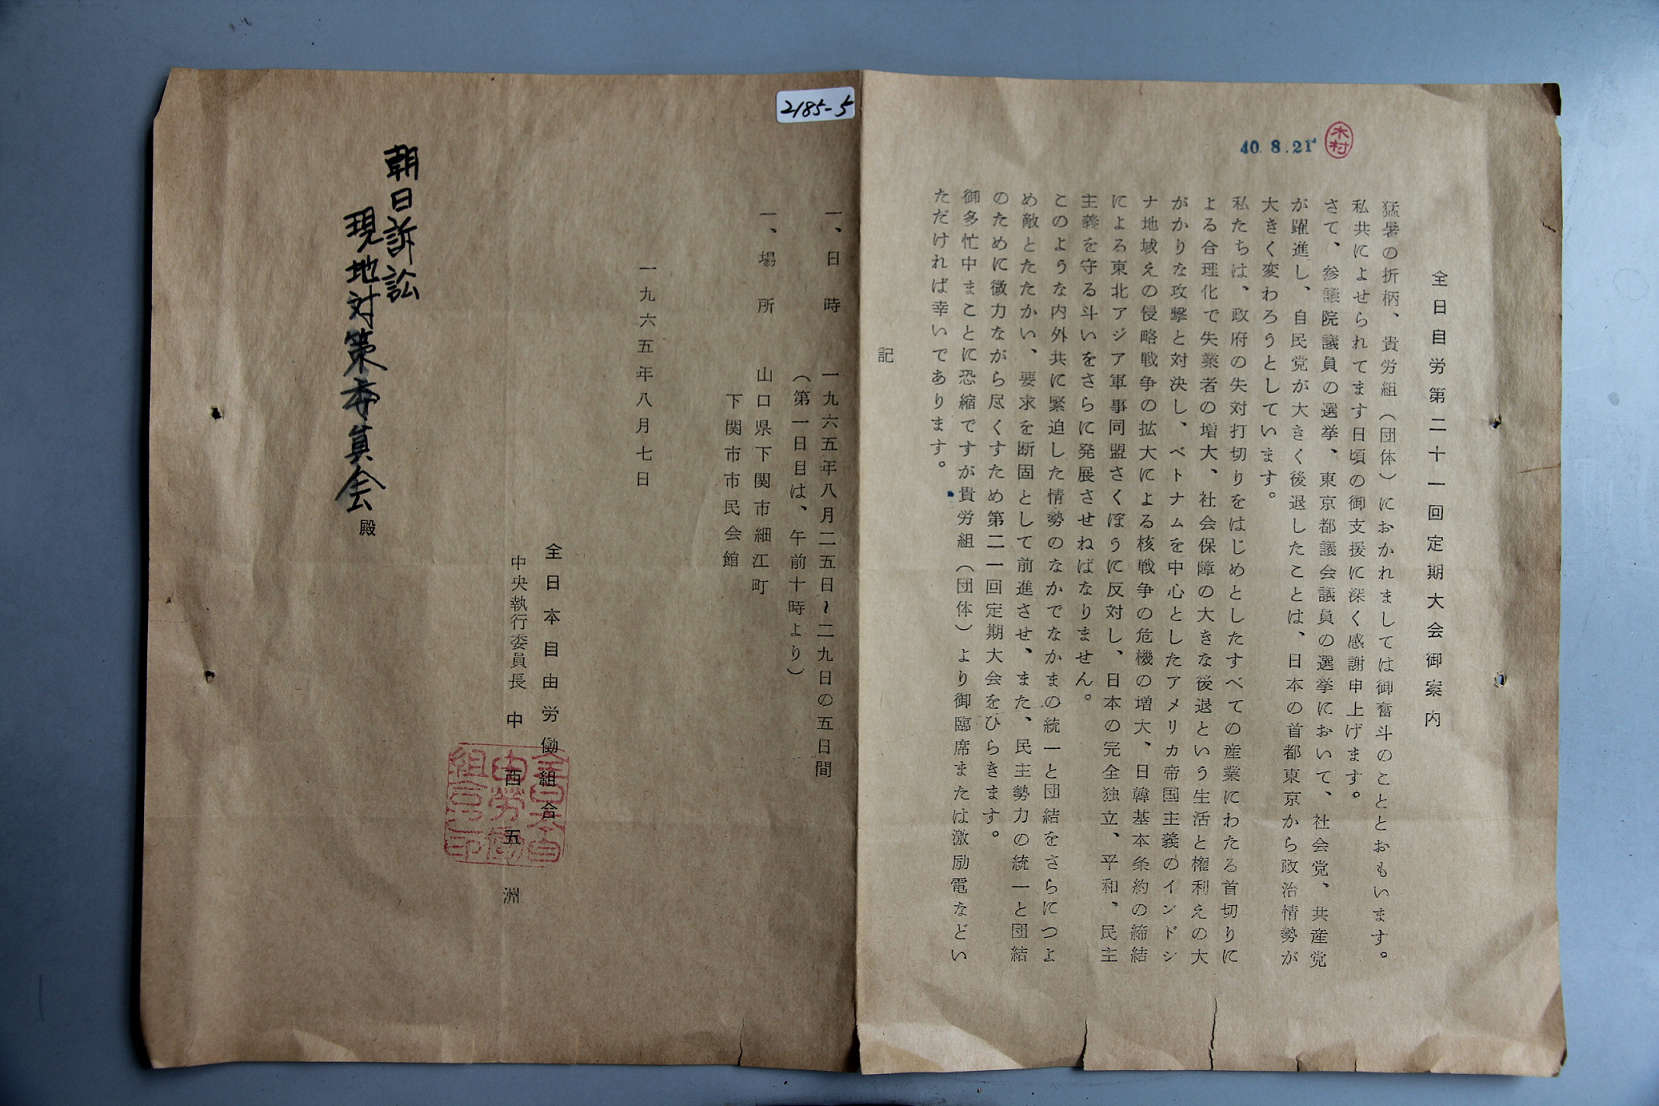 2185-5
40.8.21
木村
全日自労第二十一回定期大会御案内
猛暑の折柄、貴労組（団体）におかれましては御奮斗のこととおもいます。
私共によせられてます日頃の御支援に深く感謝申上げます。
さて、参議院議員の選挙、東京都議会議員の選挙において、社会党、共産党
が躍進し、自民党が大きく後退したことは、日本の首都東京から政治情勢が
大きく変わろうとしています。
私たちは、政府の失対打切りをはじめとしたすべての産業にわたる首切りに
よる合理化で失業者の増大、社会保障の大きな後退という生活と権利えの大
がかりな攻撃と対決し、ベトナムを中心としたアメリカ帝国主義のインドシ
ナ地域えの侵略戦争の拡大による核戦争の危機の増大、日韓基本条約の締結
による東北アジア軍事同盟さくぼうに反対し、日本の完全独立、平和、民主
主義を守る斗いをさらに発展させねばなりません。
このような内外共に緊迫した情勢のなかでなかまの統一と団結をさらにつよ
め敵とたたかい、要求を断固として前進させ、また、民主勢力の統一と団結
のために微力ながら尽くすため第二一回定期大会をひらきます。
御多忙中まことに恐縮ですが貴労組（団体）より御臨席または激励電などい
ただければ幸いであります。
記
一、日時　一九六五年八月二五日~二九日の五日間
（第一日目は、午前十時より）
一、場所　山口県下関市細江町
下関市市民会館
一九六五年八月七日
全日本自由労働組合
中央執行委員長　中西五洲
全日本自
由労働
組合印
朝日訴訟
現地対策委員会殿